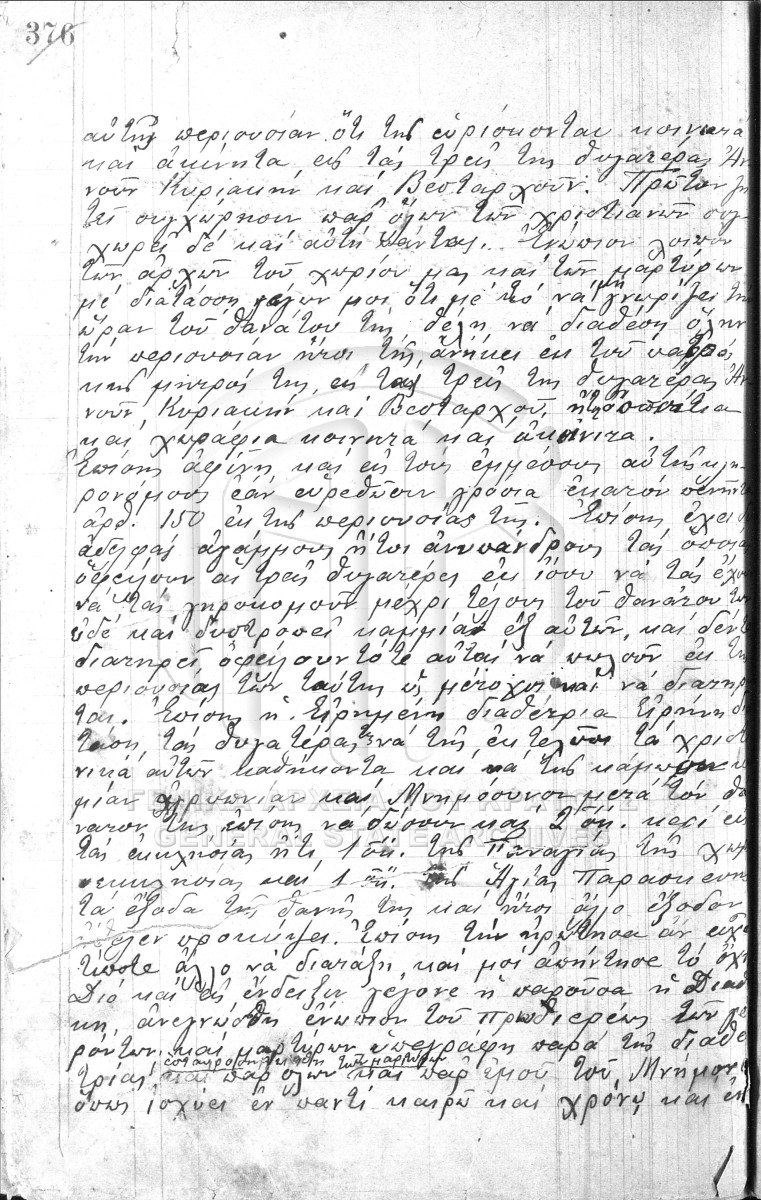 376
αὐτῆς περιουσίαν ὅτι τῆς εὑρίσκονται κοινητὰ
καὶ ἀκίνητα εἰς τὰς τρεῖς της θυγατέρας Ἀν
νοῦν Κυριακὴν καὶ Βεσταρχοῦν. Πρῶτον ζη
τεῖ συγχώρησιν παρ' ὅλων τῶν χριστιανῶν συγ
χωρεῖ δὲ καὶ αὐτὴ πάντας. Ἐνώπιον λοιπὸν
τῶν ἀρχῶν τοῦ χωρίου μας καὶ τῶν μαρτύρων
μὲ διατάσση λέγων μοι ὅτι μὲ τὸ νὰ μὴ γνωρίζει τὴν
ὥραν τοῦ θανάτου της θέλη νὰ διαθέση ὅλην
τὴν περιουσίαν ἥτις τῆς ἀνήκει ἐκ τοῦ πατρὸς
κ τῆς μητρός της εἰς τὰς τρεῖς της θυγατέρας Ἀν
νοῦν, Κυριακὴν καὶ Βεσταρχοῦ, ὀσπήτια
καὶ χωράφια κοινητὰ καὶ ἀκίνιτα.
Ἐπίσης ἀφίνη καὶ εἰς τοὺς ἐμμέσους αὐτῆς κλη
ρονόμους ἐὰν εὑρεθῶσιν γρόσια ἑκατὸν πενῆντα
ἀρθ. 150 ἐκ τῆς περιουσίας της. Ἐπίσης ἔχει δύο
ἀδελφὰς ἀγάμμους ἤτοι ἀνυπάνδρους τὰς ὁποίας
ὀφείλουν αἱ τρεῖς θυγατέρες ἐκ ἴσου νὰ τὰς ἔχουν
νὰ τὰς γηροκομοῦν μέχρι τέλους τοῦ θανάτου των
εἰ δὲ καὶ δυστροπεῖ καμμία ἐξ αὐτῶν, καὶ δὲν τ
διατηρεῖ ὀφείλουν τότε αὗται νὰ πωλοῦν ἐκ τῆς
περιουσίας των ταύτης ὡς μέτοχοι καὶ νὰ διατηρ
ται. Ἐπίσης ἡ εἰρημένη διαθέτρια Εἰρήνη δια
τάση τὰς θυγατέρας της νὰ τῆς ἐκτελοῦσι τὰ χριστια
νικὰ αὐτῶν καθήκοντα καὶ νὰ τῆς κάμωσιν
μίαν καὶ Μνημόσυνον μετὰ τὸν θά
νατον της ἐπίσης νὰ δώσουν καὶ 2 ὀκ. κερὶ εἰς
τὰς ἐκκλησίας ἤτοι 1 ὀκ. τῆς Παναγίας τῆς χωρ
νεκκλησίας καὶ 1 ὀκ. τῆς Ἁγίας Παρασκευῆς
τὰ ἔξοδα τῆς θανῆς της καὶ ἤτοι ἄλλο ἔξοδον
ἤθελεν προκύψει. Ἐπίσης τὴν ἠρώτησα ἂν εὐχ
τίποτε ἄλλο νὰ διατάξη, καὶ μοὶ ἀπήντησε τὸ ὄχι
Διὸ καὶ εἰς ἔνδειξιν γέγονε ἡ παροῦσα ἡ Διαθή
κη, ἀνεγνώσθη ἐνώπιον τοῦ πρωθιερέως τῶν γε
ρόντων καὶ μαρτύρων ὑπεγράφη παρὰ τῆς διαθε
τρίας καὶ παρ' ὅλων καὶ παρ' ἐμοῦ τοῦ Μνήμονος
ὅπως ἰσχύει ἐν παντὶ καιρῷ καὶ χρόνῳ καὶ ἐν
ΓΕΝΙΚΑ ΑΡΧΕΙΑ ΤΟΥ ΚΡΑΤΟΥΣ
GENERAL STATE ARCHIVES